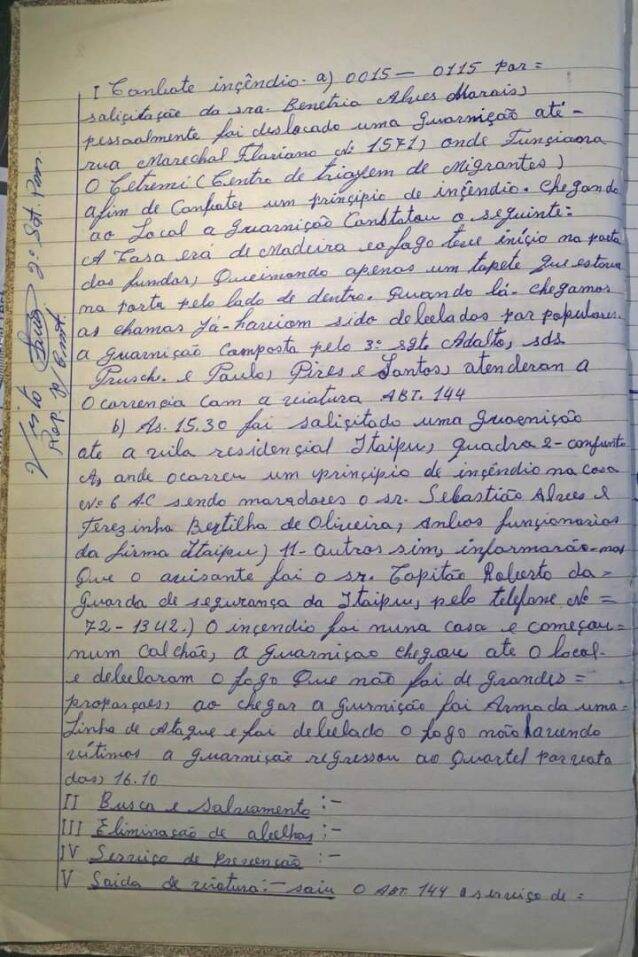 I Conbate inçêndio. a) 0015 — 0115 por =
saliçitação da sra. Benetria Alves Marais,
pessoalmente fai deslocado uma guarnição até -
rua Marechal Flariano Nº 1571, onde Funçiaona
O Cetremi (Centro de triagem de Migrantes)
afim de Conbater um prinçipio de inçêndio. chegando
ao Local a guarnição Constatou o seguinte:
A Casa erá de Madeira eo fogo teve início na porta
das fundos, Queimando apenas um tapete que estava
na porta pelo lado de dentro. Quando lá- chegamos
as chamas Já- haviam sido debelados por populares.
a guarnição Composta pelo 3º sgto Adalto, sds
Prusch. e Paulo, Pires e Santos, atenderan a
Ocorrencia Cam a viatura ABT. 144
b) As. 15.30 fai saliçitado uma guarnição
ate a vila residencial Itaipu, Quadra 2- conjunto
A, ande ocorreu um prinçipio de inçêndio na casa
Nº 6 AC sendo maradores o sr. Sebastião Alves e
Terezinha Bertilha de Oliveira, anbos funçionarios
da firma Itaipu) 11- outros sim, informarão-nos
Que o avisante fai o sr. Capitão Roberto da =
guarda de segurança da Itaipu, pelo telefone Nº =
72-1342.) O inçendio foi numa casa e começou =
num Calchão, a guarniçao chegou ate o local-
e debelaram o fogo Que não fai de grandes =
proparçoes, ao chegar a gurnição fai Armada uma =
Linha de Ataque e fai debelado o fogo não havendo
vitimas a guarnição regressou ao Quartel por vata
das, 16.10
II Busca e Salvamento :-
III Eliminação de abelhas :-
IV Serviço de prevenção :-
V Saida de viatura :- saiu O ABT 144 a serviço de =
Visto 2º Sgt. Pm.
Rep. p/